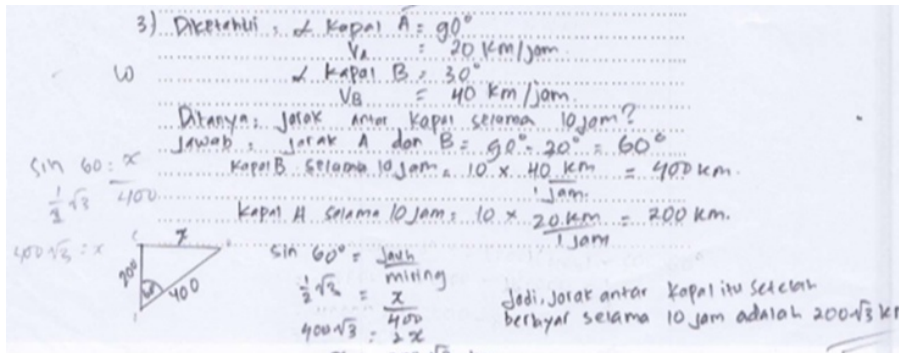 3) Diketahui : ∠ Kapal A = 90°
VA = 20 km/jam
10
∠ Kapal B = 30°
VB = 40 km/jam.
Ditanya : Jarak antar kapal selama 10 jam?
Jawab : Jarak A dan B = 90° - 30° = 60°
Kapal B selama 10 jam = 10 × 40 km / 1 jam = 400 km.
sin 60 : x / 400
1/2 √3
Kapal A selama 10 jam = 10 × 20 km / 1 jam = 200 km.
400√3 : x
x
200
60
400
sin 60° = Jauh / miring
1/2 √3 = x / 400
400√3 = 2x
Jadi, jarak antar kapal itu setelah
berlayar selama 10 jam adalah 200√3 km